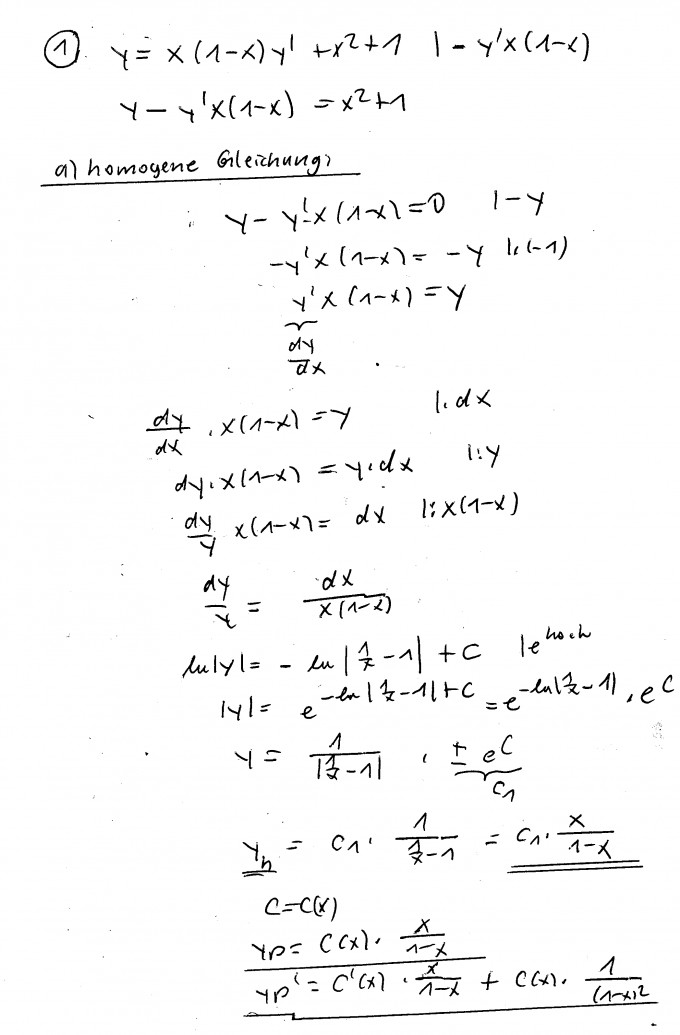 ① y = x(1-x)y' + x²+1 | - y'x(1-x)
y - y'x(1-x) = x²+1
a) homogene Gleichung:
y - y'·x(1-x) = 0 | -y
-y'x(1-x) = -y |·(-1)
y'x(1-x) = y
dy/dx
dy/dx · x(1-x) = y |· dx
dy·x(1-x) = y·dx |:y
dy/y x(1-x) = dx |: x(1-x)
dy/y = dx/x(1-x)
ln|y| = - ln|1/x - 1| + C |e hoch
|y| = e^(-ln|1/x - 1|+C) = e^(-ln|1/x - 1|) · e^C
y = 1/|1/x - 1| · ± e^C
C₁
y_h = C₁· 1/(1/x - 1) = C₁· x/(1-x)
C=C(x)
yp = C(x)· x/(1-x)
yp' = C'(x) · x/(1-x) + C(x)· 1/(1-x)²